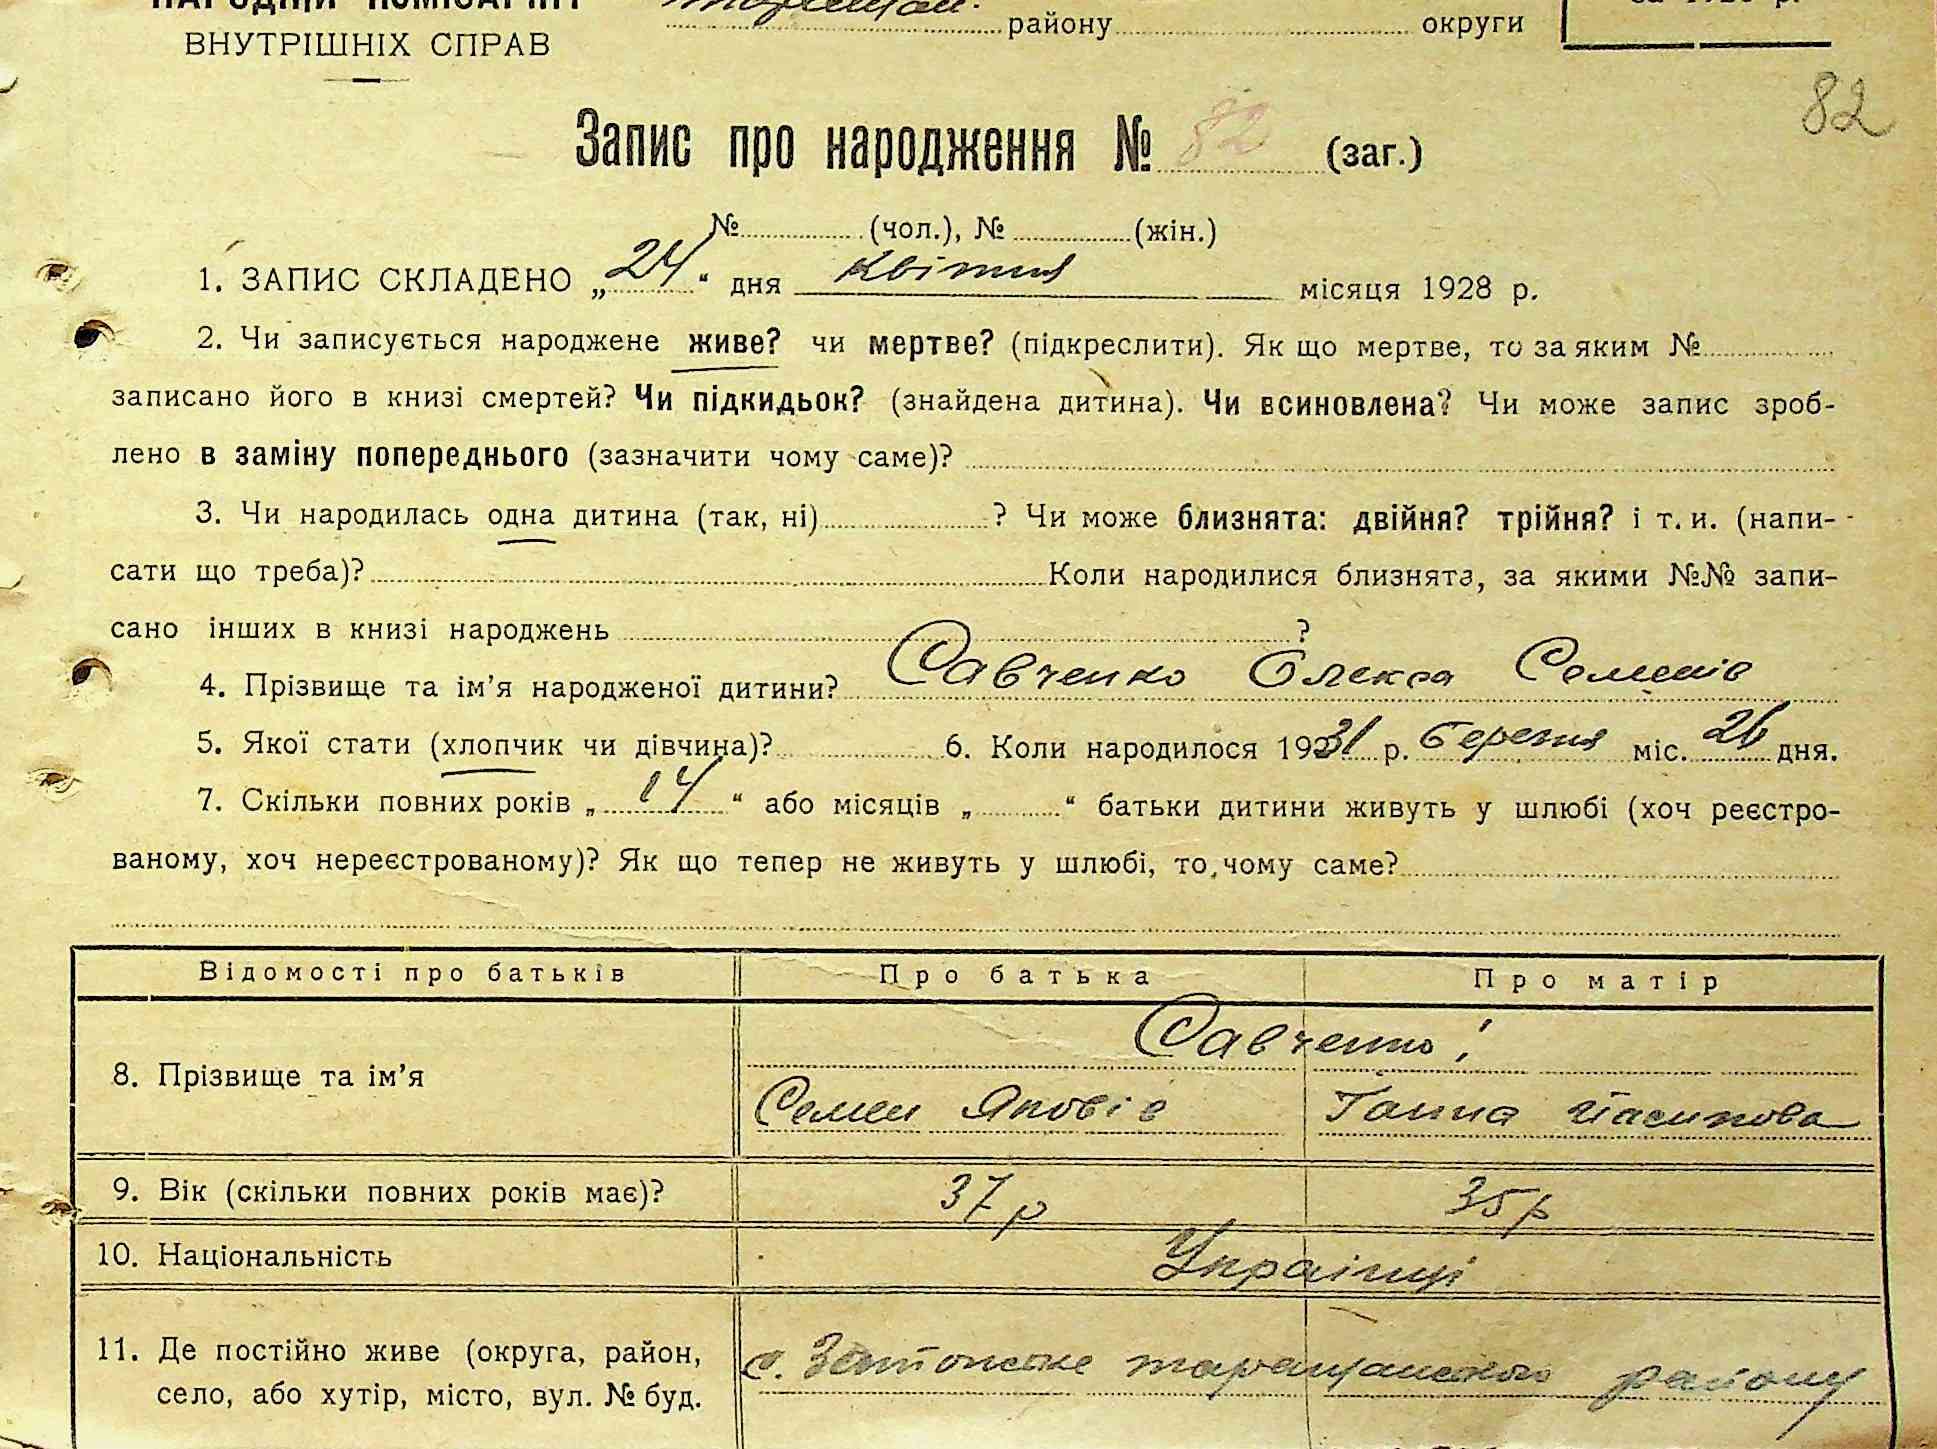 НАРОДНІЙ КОМІСАРІЯТ
ВНУТРІШНІХ СПРАВ
району округи
82
Запис про народження № 82 (заг.)
№ (чол.), № (жін.)
1. ЗАПИС СКЛАДЕНО „24“ дня квітня місяця 1928 р.
2. Чи записується народжене живе? чи мертве? (підкреслити). Як що мертве, то за яким №
записано його в книзі смертей? Чи підкидьок? (знайдена дитина). Чи всиновлена? Чи може запис зроб-
лено в заміну попереднього (зазначити чому саме)?
3. Чи народилась одна дитина (так, ні) ? Чи може близнята: двійня? трійня? і т. и. (напи-
сати що треба)? Коли народилися близнята, за якими №№ запи-
сано інших в книзі народжень ?
4. Прізвище та ім’я народженої дитини? Савченко Олекса Семенів
5. Якої стати (хлопчик чи дівчина)? 6. Коли народилося 1931 р. березня міс. 26 дня.
7. Скільки повних років „14“ або місяців „ “ батьки дитини живуть у шлюбі (хоч реєстро-
ваному, хоч нереєстрованому)? Як що тепер не живуть у шлюбі, то чому саме?
Відомості про батьків Про батька Про матір
Савченко
8. Прізвище та ім’я
Семен Яковів Ганна
9. Вік (скільки повних років має)? 37 р 35 р
10. Національність Українці
11. Де постійно живе (округа, район,
с. таращанського району
село, або хутір, місто, вул. № буд.